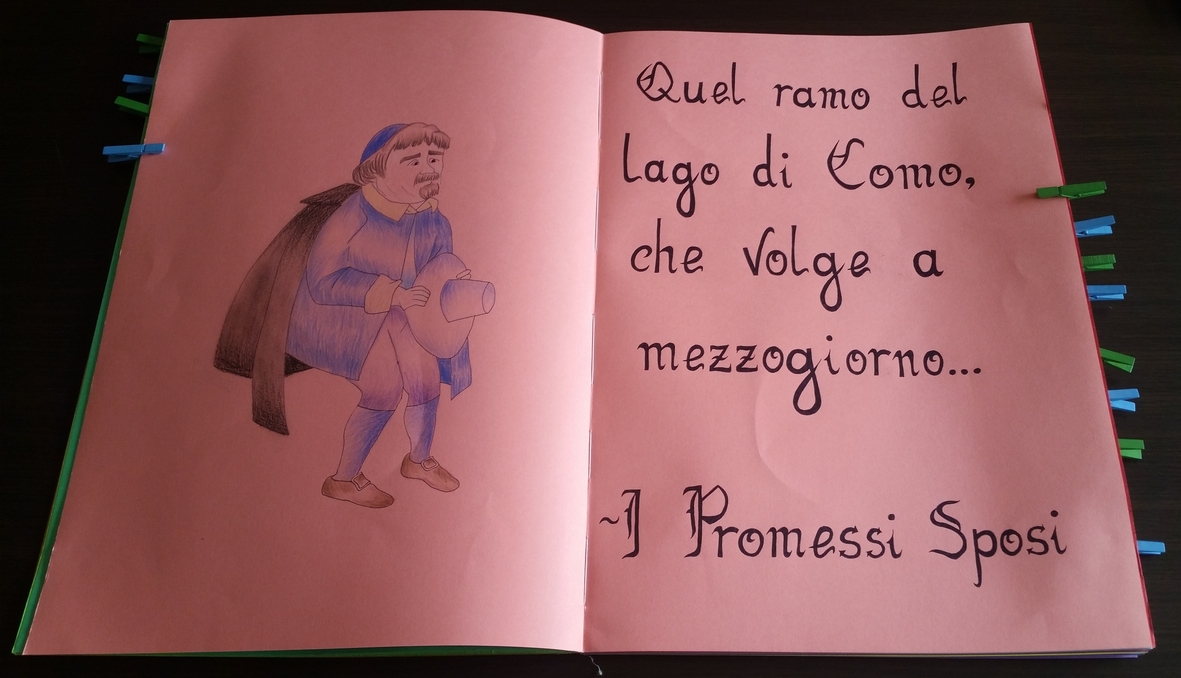 Quel ramo del
lago di Como,
che volge a
mezzogiorno...
~I Promessi Sposi